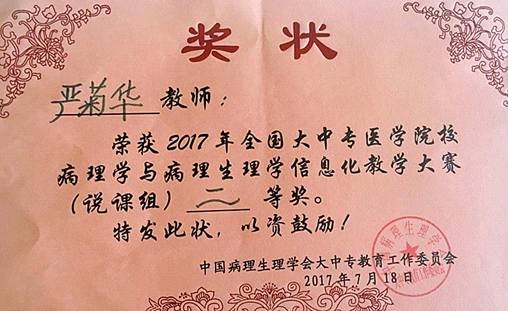 奖状
严菊华 教师：
荣获2017年全国大中专医学院校
病理学与病理生理学信息化教学大赛
（说课组）二等奖。
特发此状，以资鼓励！
中国病理生理学会大中专教育工作委员会
2017年7月18日